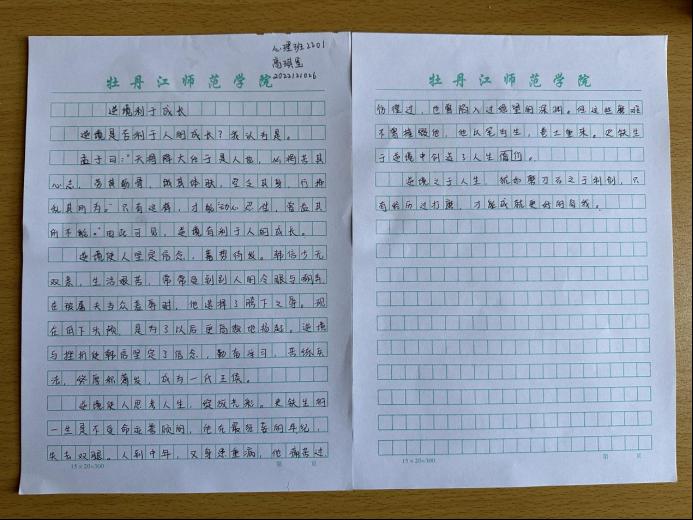 心理班2201
高琪
2022121026
牡丹江师范学院
逆境利于成长
逆境是否利于人的成长？我认为是。
孟子曰："天将降大任于是人也，必先苦其
心志，劳其筋骨，饿其体肤，空乏其身，行拂
乱其所为。"只有这样，才能"动心忍性，曾益其
所不能。"由此可见，逆境有利于人的成长。
逆境使人坚定信念，蓄势待发。韩信少无
双亲，生活艰苦，常常受到别人的冷眼与嘲弄
在被屠夫当众羞辱时，他选择了胯下之辱。现
在低下头颅，是为了以后更高傲地抬起。逆境
与挫折使韩信坚定了信念，勤奋学习，苦练兵
法，终居然奋发，成为一代王侯。
逆境使人思考人生，绽放光彩。史铁生的
一生是不受命运眷顾的，他在最狂妄的年纪，
失去双腿。人到中年，又身患重病，他痛苦过
15×20=300
第 页
牡丹江师范学院
彷徨过，也曾陷入过绝望的深渊。但这些磨难
不曾摧毁他，他以笔为生，卷土重来。史铁生
于逆境中创造了人生价值。
逆境之于人生，就如磨刀石之于利剑，只
有经历过打磨，才能成就更好的自我。
15×20=300
第 页